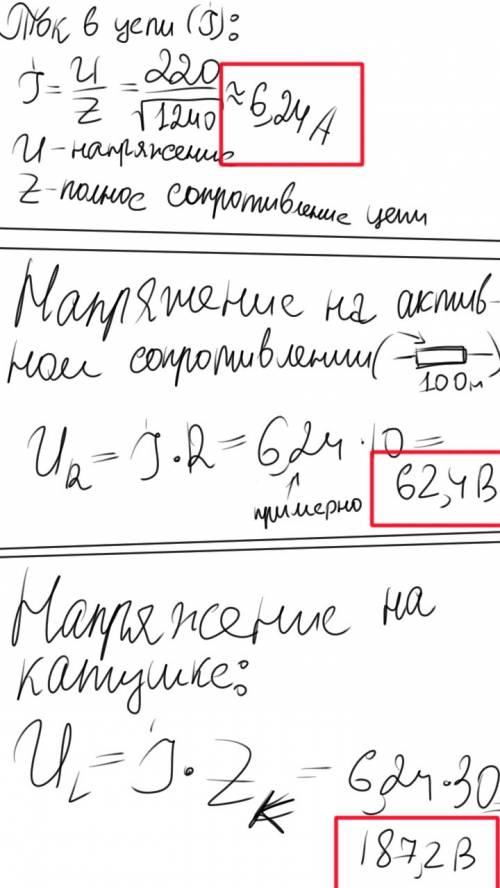 Ток в цепи (I):
I = U/Z = 220/√1240 ≈ 6,24 А
U - напряжение
Z - полное сопротивление цепи
Напряжение на актив-
ном сопротивлении (
10 Ом
U_R = I · R = 6,24 · 10 =
62,4 В
примерно
Напряжение на
катушке:
U_L = I · Z_K = 6,24 · 30
187,2 В